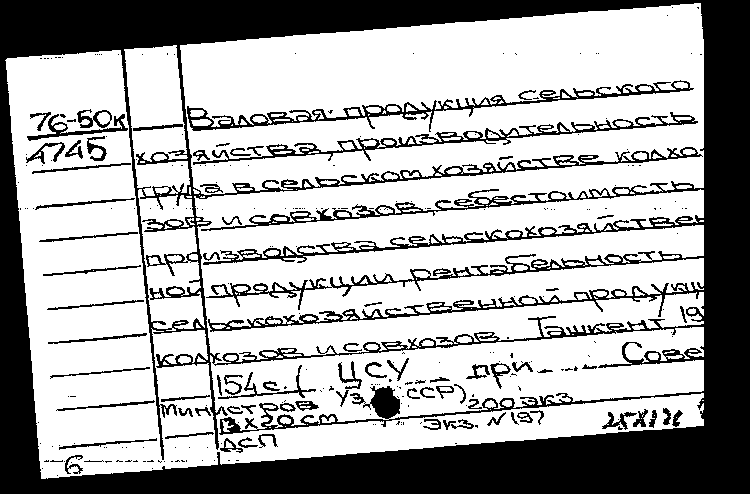 76-50к Валовая продукция сельского
4745 хозяйства, производительность
труда в сельском хозяйстве колхо-
зов и совхозов, себестоимость
производства сельскохозяйствен
ной продукции, рентабельность
сельскохозяйственной продукц
колхозов и совхозов. Ташкент, 19
154 с. ( ЦСУ при Сове
Министров Уз ССР). 200 экз.
13 х 20 cm экз. N 197
ДСП
6